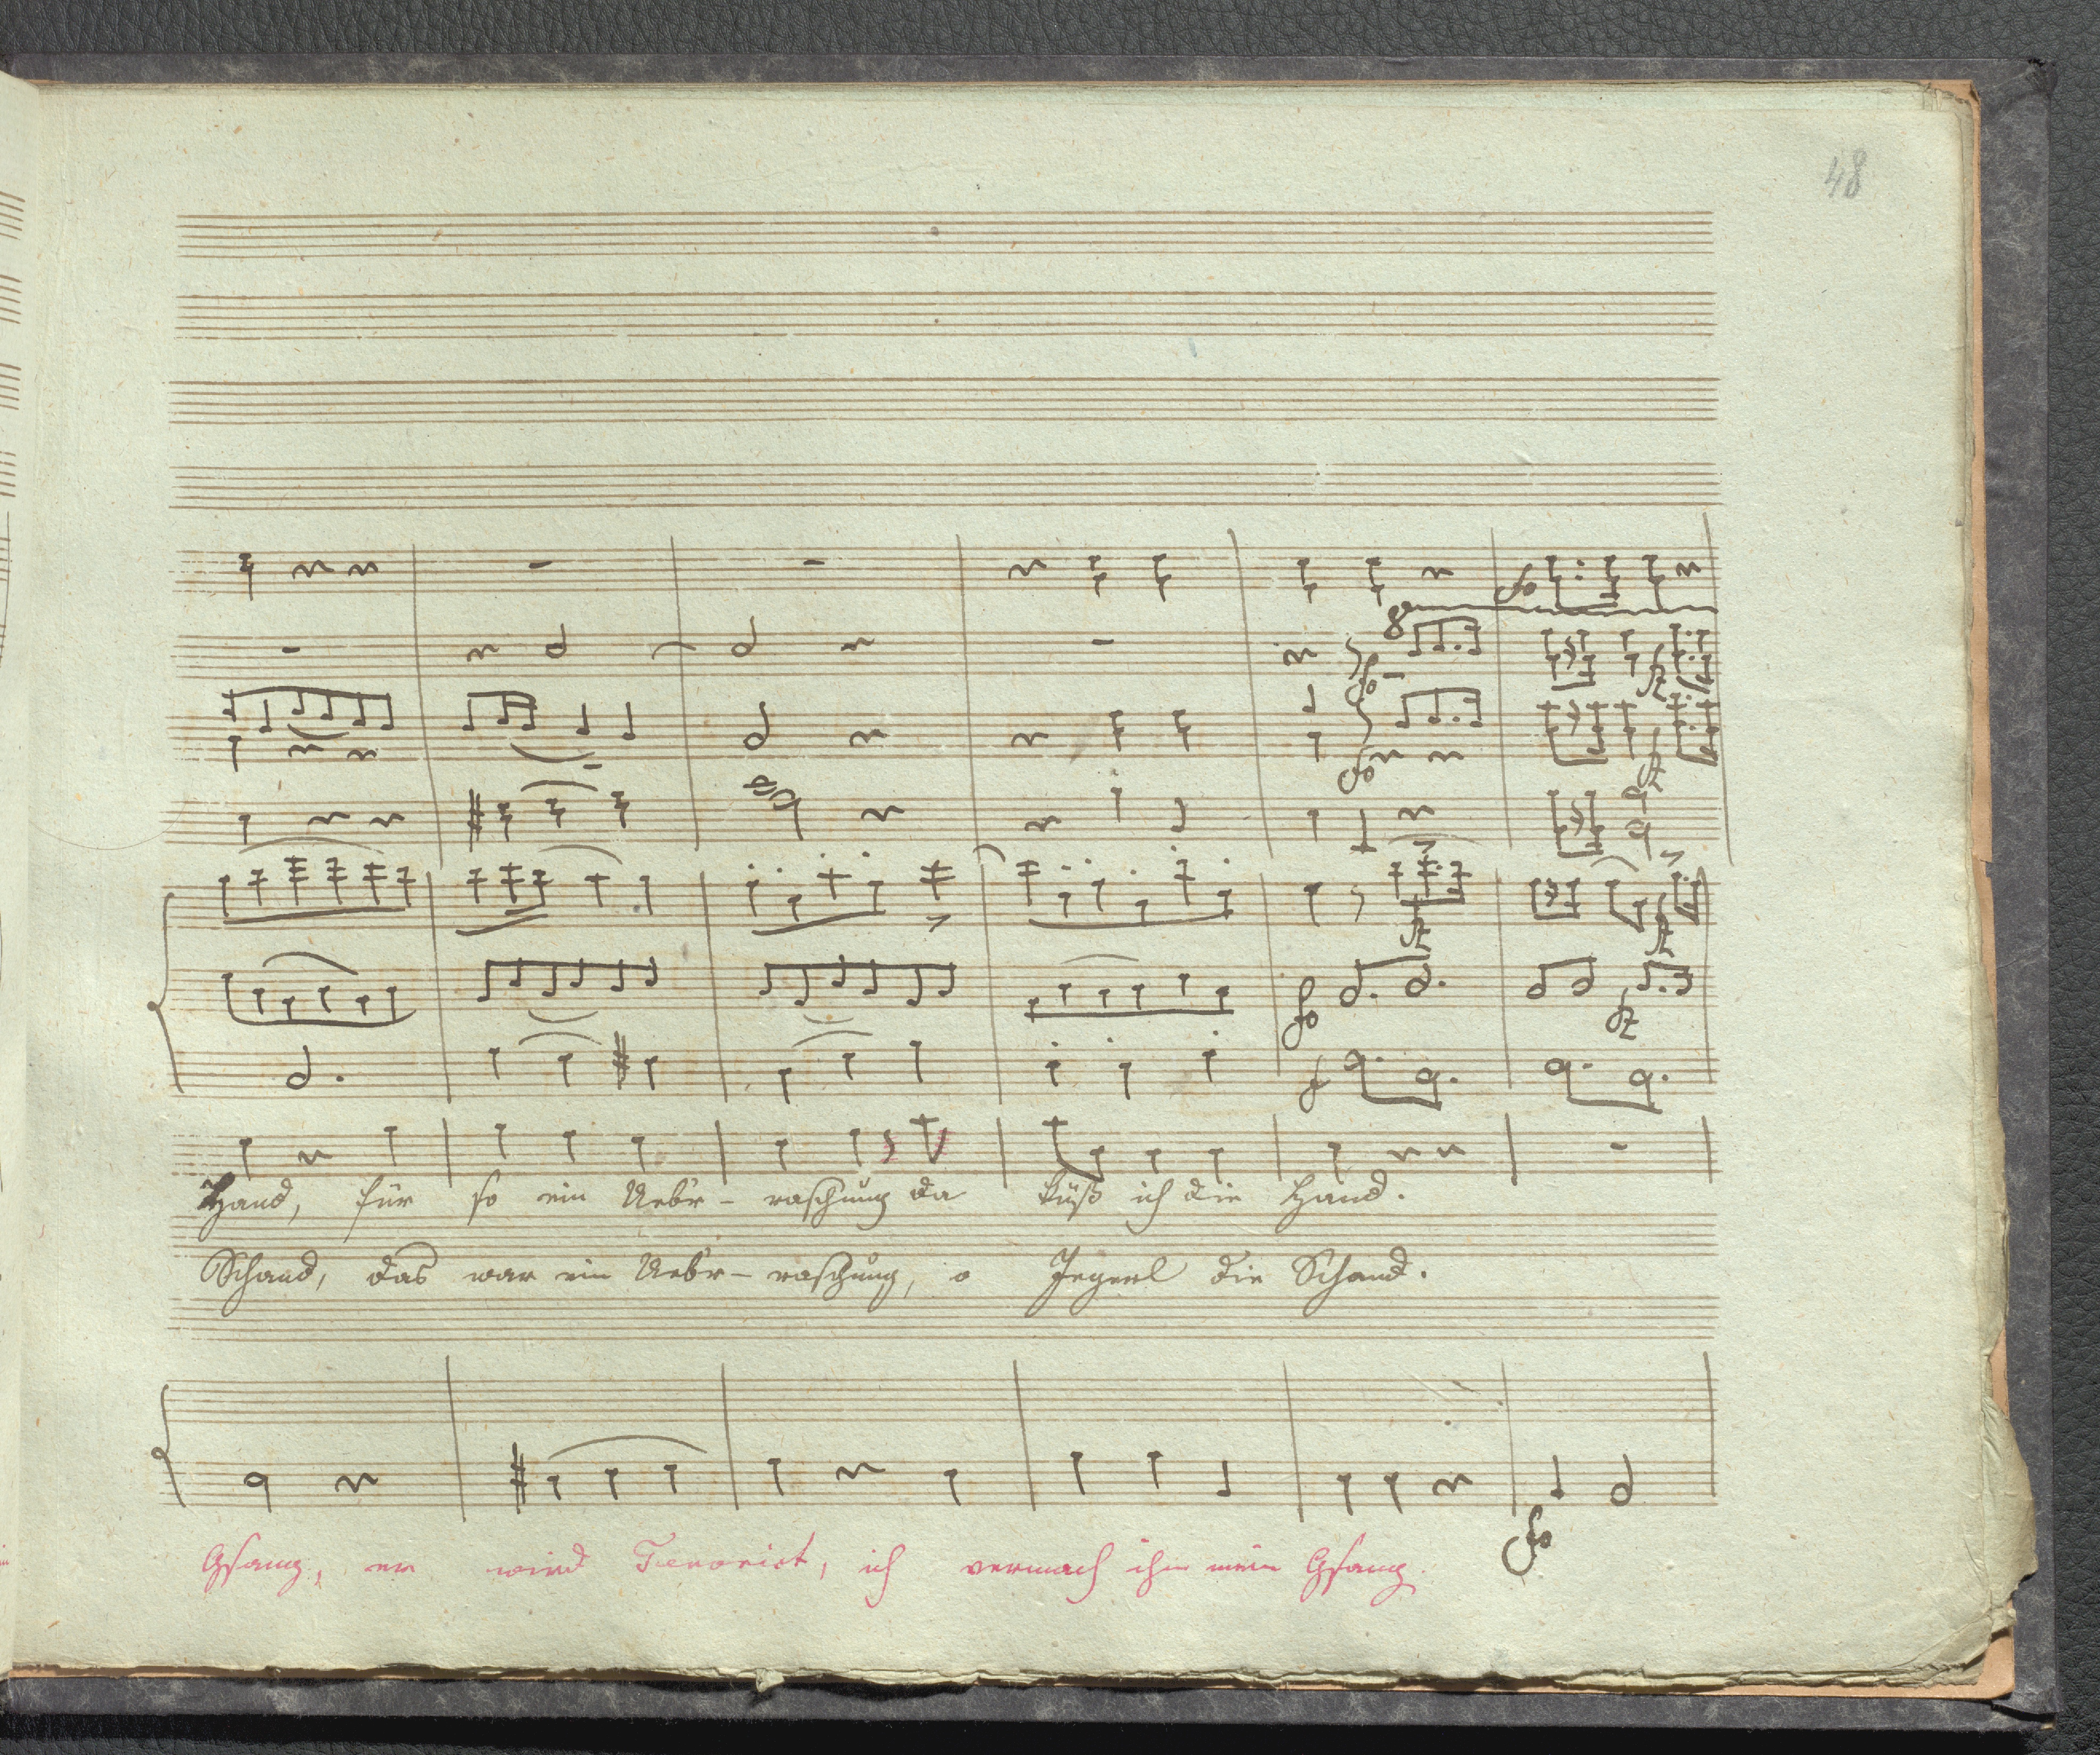 48
fo
8
fo
fz
fo
fz
fz
fz
fo
fz
f
Hand, für so ein Uebr-raschung da küß ich die Hand.
Schand, das war ein Uebr-raschung, o Jegerl die Schand.
fo
Gsang, er wird Tenorist, ich vermach ihm mein Gsang.